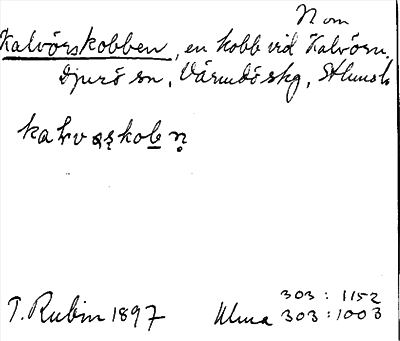 Nom
Kalvörskobben, en kobb vid Kalvörn.
Djurö sn, Värmdö skg, Sthmsl.
T. Rubin 1897
303 : 1152
Ulma 303 : 1003